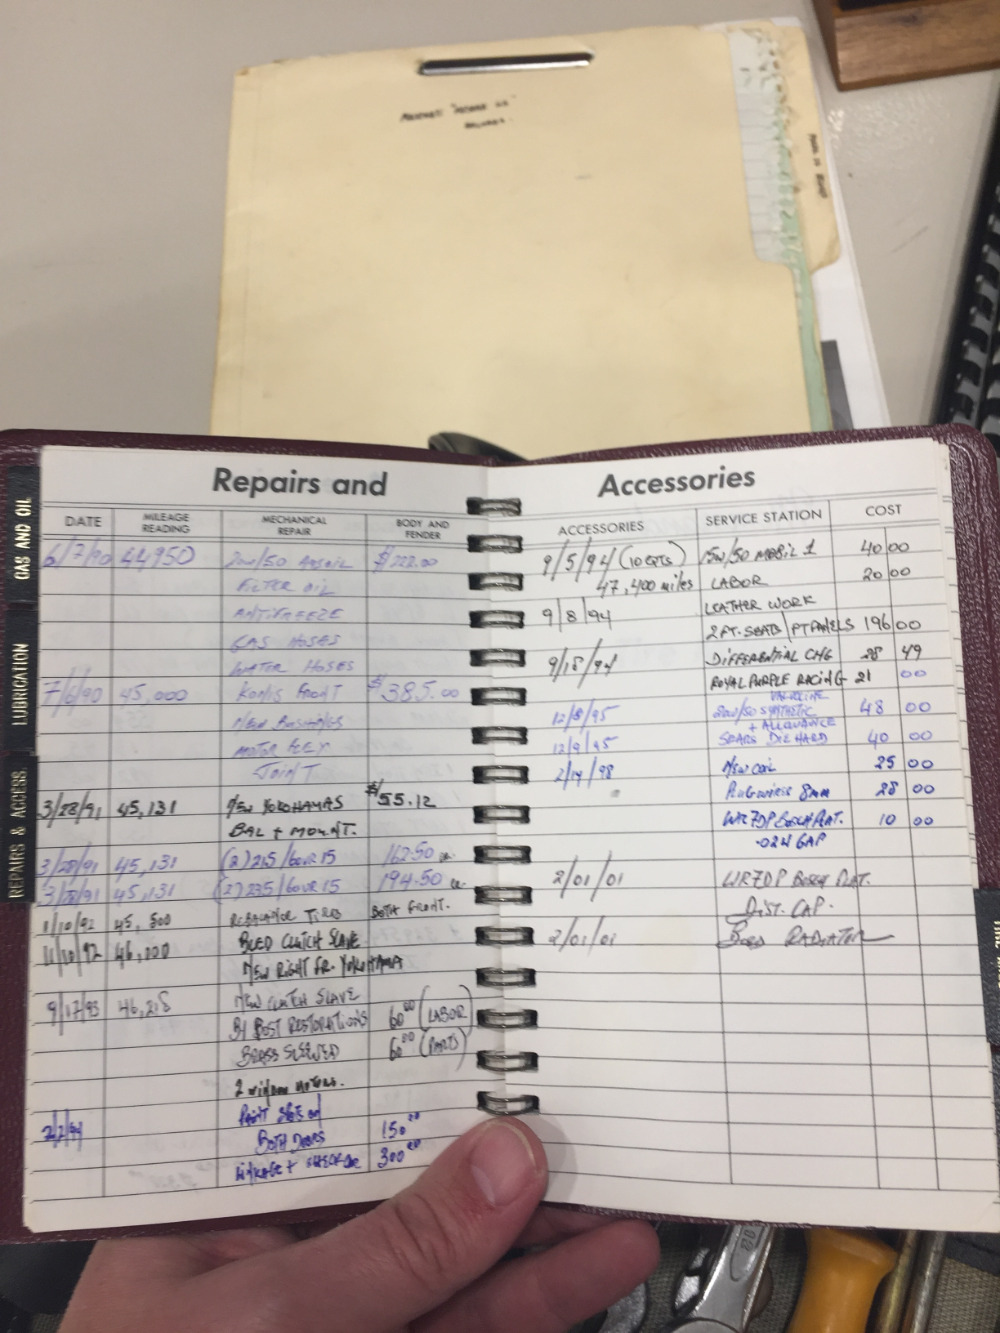 GAS AND OIL
LUBRICATION
REPAIRS & ACCESS.
Repairs and
DATE MILEAGE READING MECHANICAL REPAIR BODY AND FENDER
6/7/90 44950 20w/50 $222.00
FILTER OIL
ANTIFREEZE
GAS HOSES
WATER HOSES
7/6/90 45,000 KONIS FRONT $385.00
NEW BUSHINGS
MOTOR FLEX
JOINT
3/28/91 45,131 NEW YOKOHAMAS $55.12
BAL + MOUNT.
3/28/91 45,131 (2) 215/60VR15 162.50 ea.
3/28/91 45,131 (2) 235/60VR15 194.50 ea.
1/10/92 45,500 REBALANCE TIRES BOTH FRONT.
11/10/92 46,000 BLED CLUTCH SLAVE
NEW RIGHT FR. YOKOHAMA
9/17/93 46,218 NEW CLUTCH SLAVE
BY BEST RESTORATIONS 60.00 (LABOR)
BRASS SLEEVED 60.00 (PARTS)
2 window motors.
2/2/94 PAINT
BOTH DOORS 150.00
LINKAGE + 300.00
Accessories
ACCESSORIES SERVICE STATION COST
9/5/94 (10 QTS) 15W/50 MOBIL 1 40 00
47,400 miles LABOR 20 00
9/8/94 LEATHER WORK
2 FT. SEATS/PT PANELS 196 00
9/18/94 DIFFERENTIAL CHG 28 49
ROYAL PURPLE RACING 21 00
12/8/95 VALVOLINE 20W/50 SYNTHETIC 48 00
+ ALLOWANCE
12/9/95 SEARS DIE HARD 40 00
2/14/98 NEW COIL 25 00
PLUG WIRES 8mm 28 00
WR7DP BOSCH PLAT. 10 00
.024 GAP
2/01/01 WR7DP BOSCH PLAT.
DIST. CAP.
2/01/01 RADIATOR